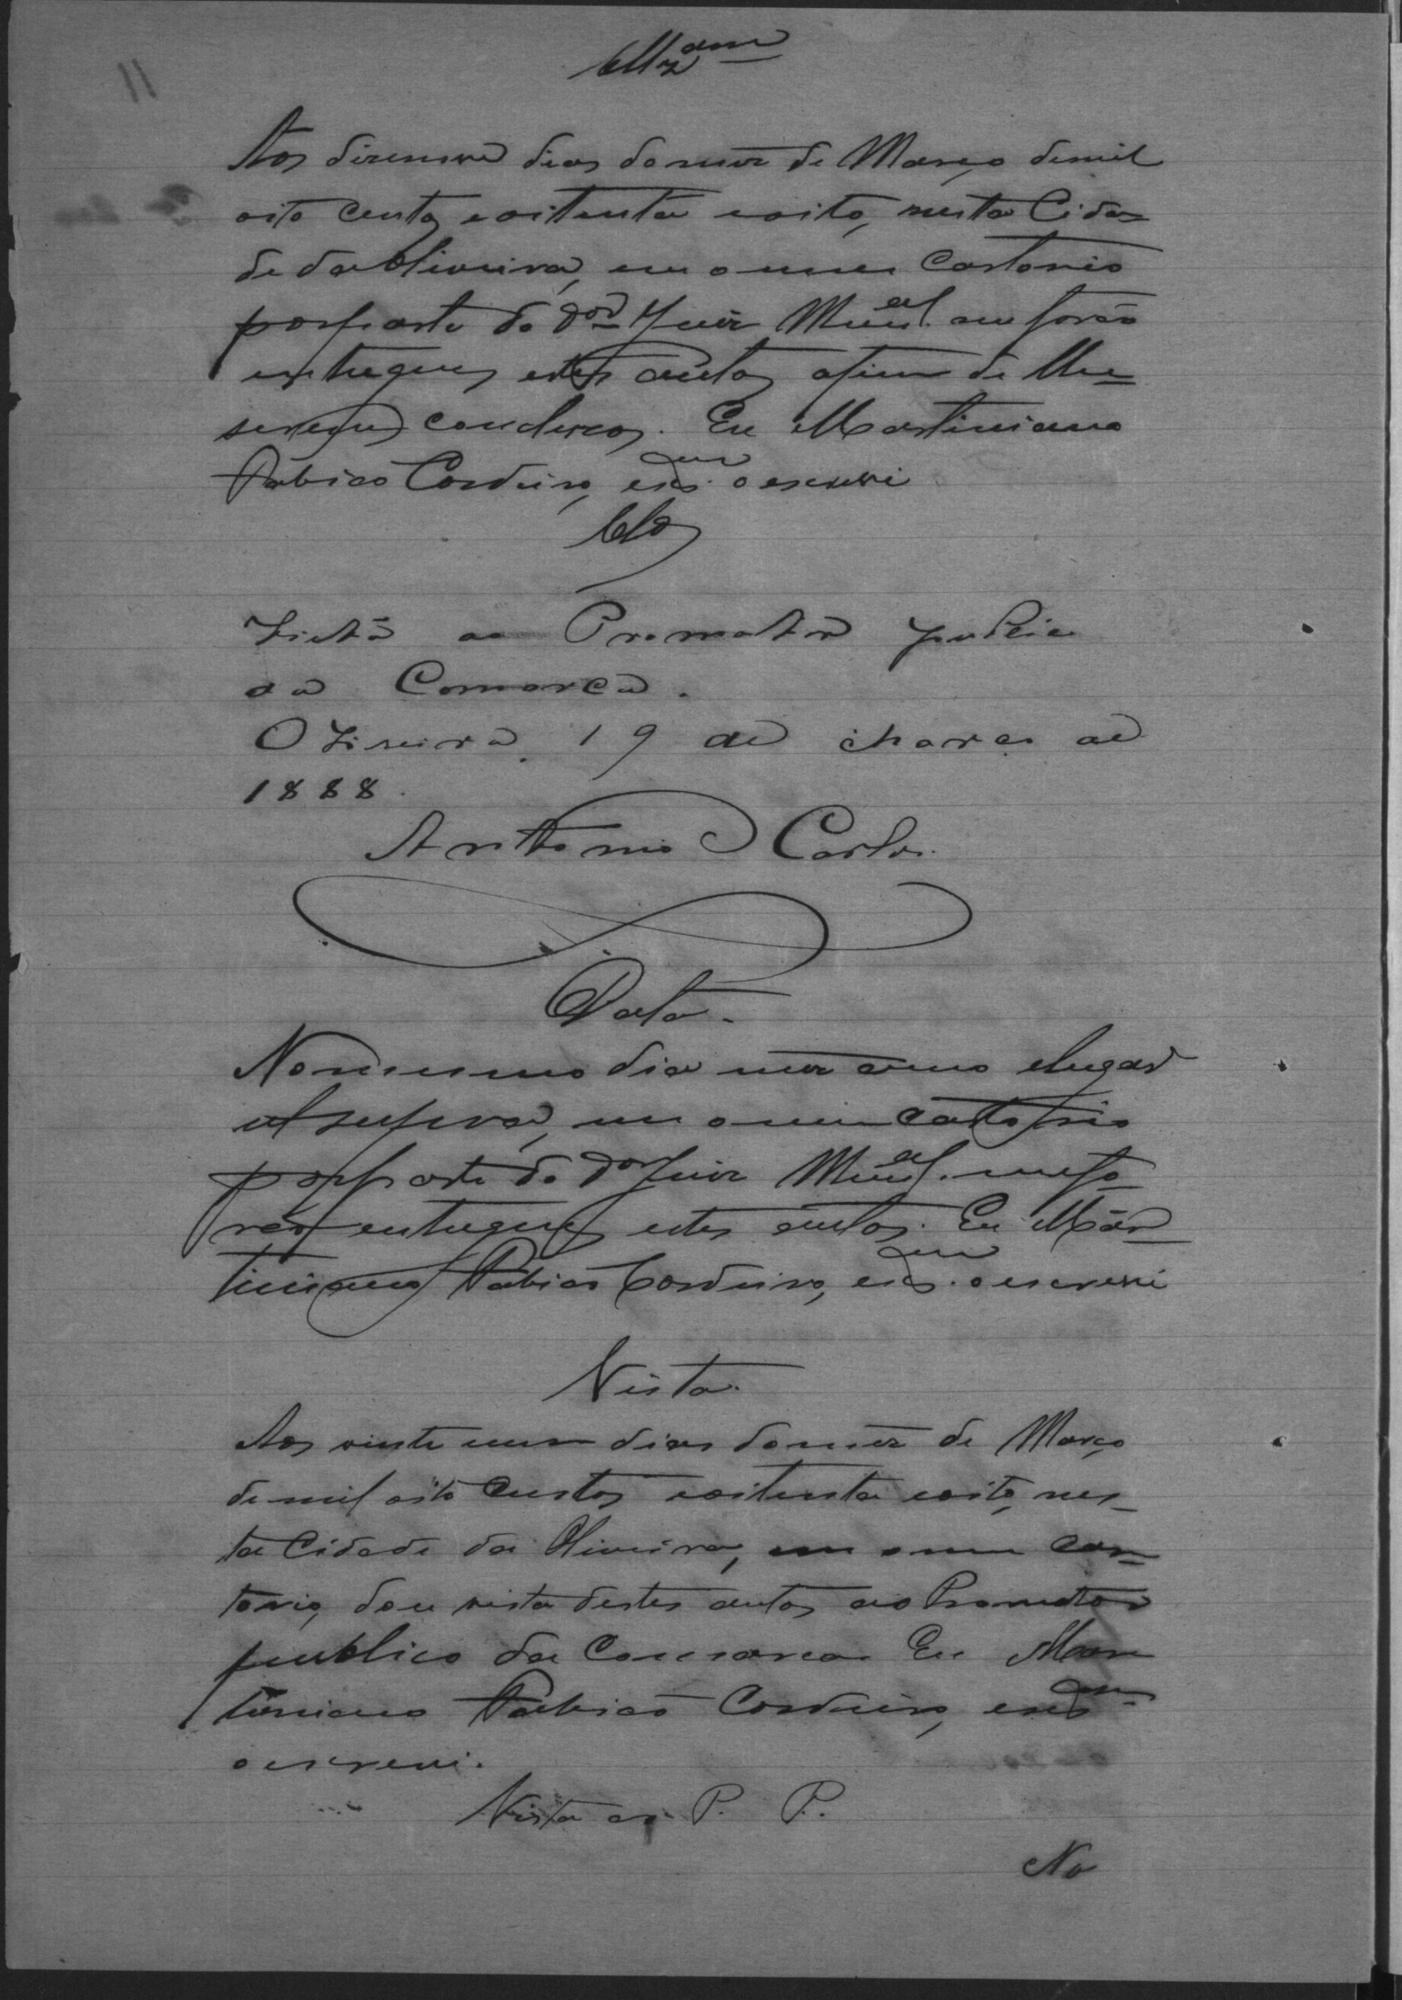 Aos desenove dias do mez de Março de mil
oito centos e oitenta e oito, nesta Cida=
de da Oliveira, em o meu Cartorio
por parte do Dor Juiz Munal. me forão
entregues estes autos afim de lhe
serem conclusos. Eu Martiniano
Fabião Cordeiro, escam. o escrevi
Clos
Vista ao Promotor publico
da Comarca.
Oliveira, 19 de Março de
1888.
Antonio Carlos.
Data.
No mesmo dia mez anno e lugar
em o meu cartorio
por parte do Dor Juiz Munal. me fo
rão entregues estes autos. Eu Mar
tiniano Fabião Cordeiro, escam. o escrevi
Vista.
Aos vinte um dias do mez de Março
de mil oito centos e oitenta e oito, nes=
ta Cidade da Oliveira, em o meu Car=
torio, dou vista destes autos ao Promotor
publico da Comarca. Eu Mar
tiniano Fabião Cordeiro, escam.
o escrevi.
Vista ao P. P.
No